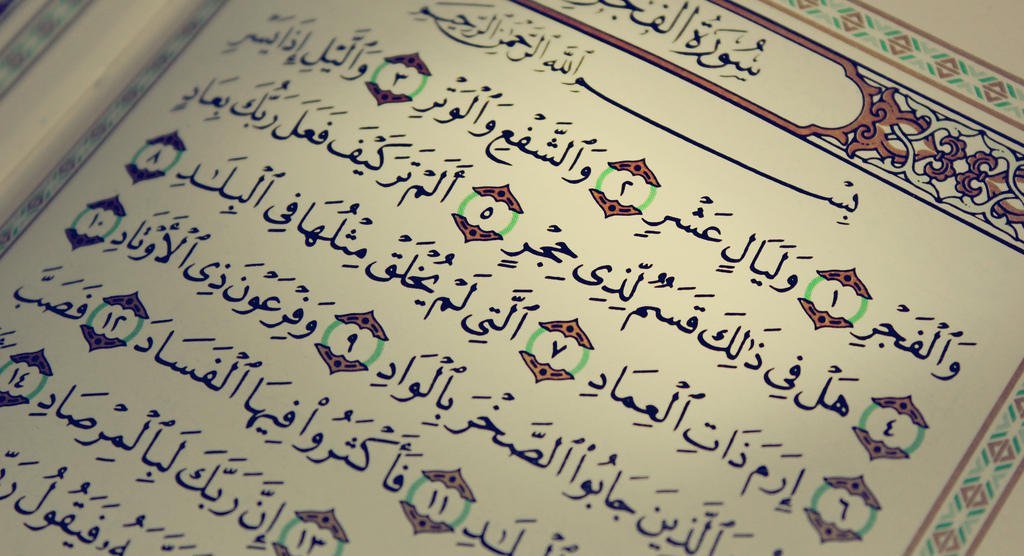 سُورَةُ الْفَجْرِ
بِسْمِ ٱللَّهِ ٱلرَّحْمَٰنِ ٱلرَّحِيمِ
وَٱلْفَجْرِ ١ وَلَيَالٍ عَشْرٍ ٢ وَٱلشَّفْعِ وَٱلْوَتْرِ ٣ وَٱلَّيْلِ إِذَا يَسْرِ
٤ هَلْ فِي ذَٰلِكَ قَسَمٌ لِّذِي حِجْرٍ ٥ أَلَمْ تَرَ كَيْفَ فَعَلَ رَبُّكَ بِعَادٍ
٦ إِرَمَ ذَاتِ ٱلْعِمَادِ ٧ ٱلَّتِي لَمْ يُخْلَقْ مِثْلُهَا فِي ٱلْبِلَٰدِ ٨
ٱلَّذِينَ جَابُوا۟ ٱلصَّخْرَ بِٱلْوَادِ ٩ وَفِرْعَوْنَ ذِى ٱلْأَوْتَادِ ١٠
١١ فَأَكْثَرُوا۟ فِيهَا ٱلْفَسَادَ ١٢ فَصَبَّ
١٣ إِنَّ رَبَّكَ لَبِٱلْمِرْصَادِ ١٤
فَيَقُولُ